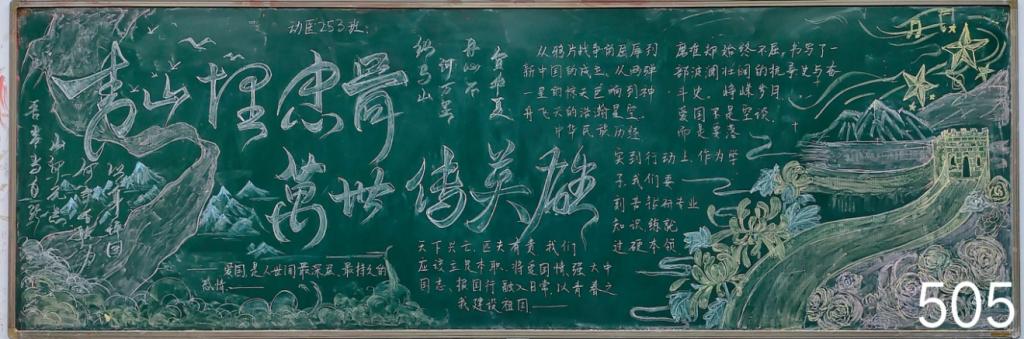 动医253班:
青山埋忠骨
萬世传英雄
吾辈当自强
山河无恙
从鸦片战争的屈辱到
新中国的成立,从两弹
一星的惊天巨响到神
舟飞天的浩瀚星空,
中华民族历经
磨难却始终不屈,书写了一
部波澜壮阔的抗争史与奋
斗史。峥嵘岁月
爱国不是空谈
而是要落
实到行动上,作为学
子,我们要
刻苦钻研专业
知识,练就
过硬本领
天下兴亡,匹夫有责,我们
应该立足本职,将爱国情、强大中
国志、报国行融入日常,以青春之
我建设祖国——
——爱国是人世间最深层、最持久的
感情.——
505